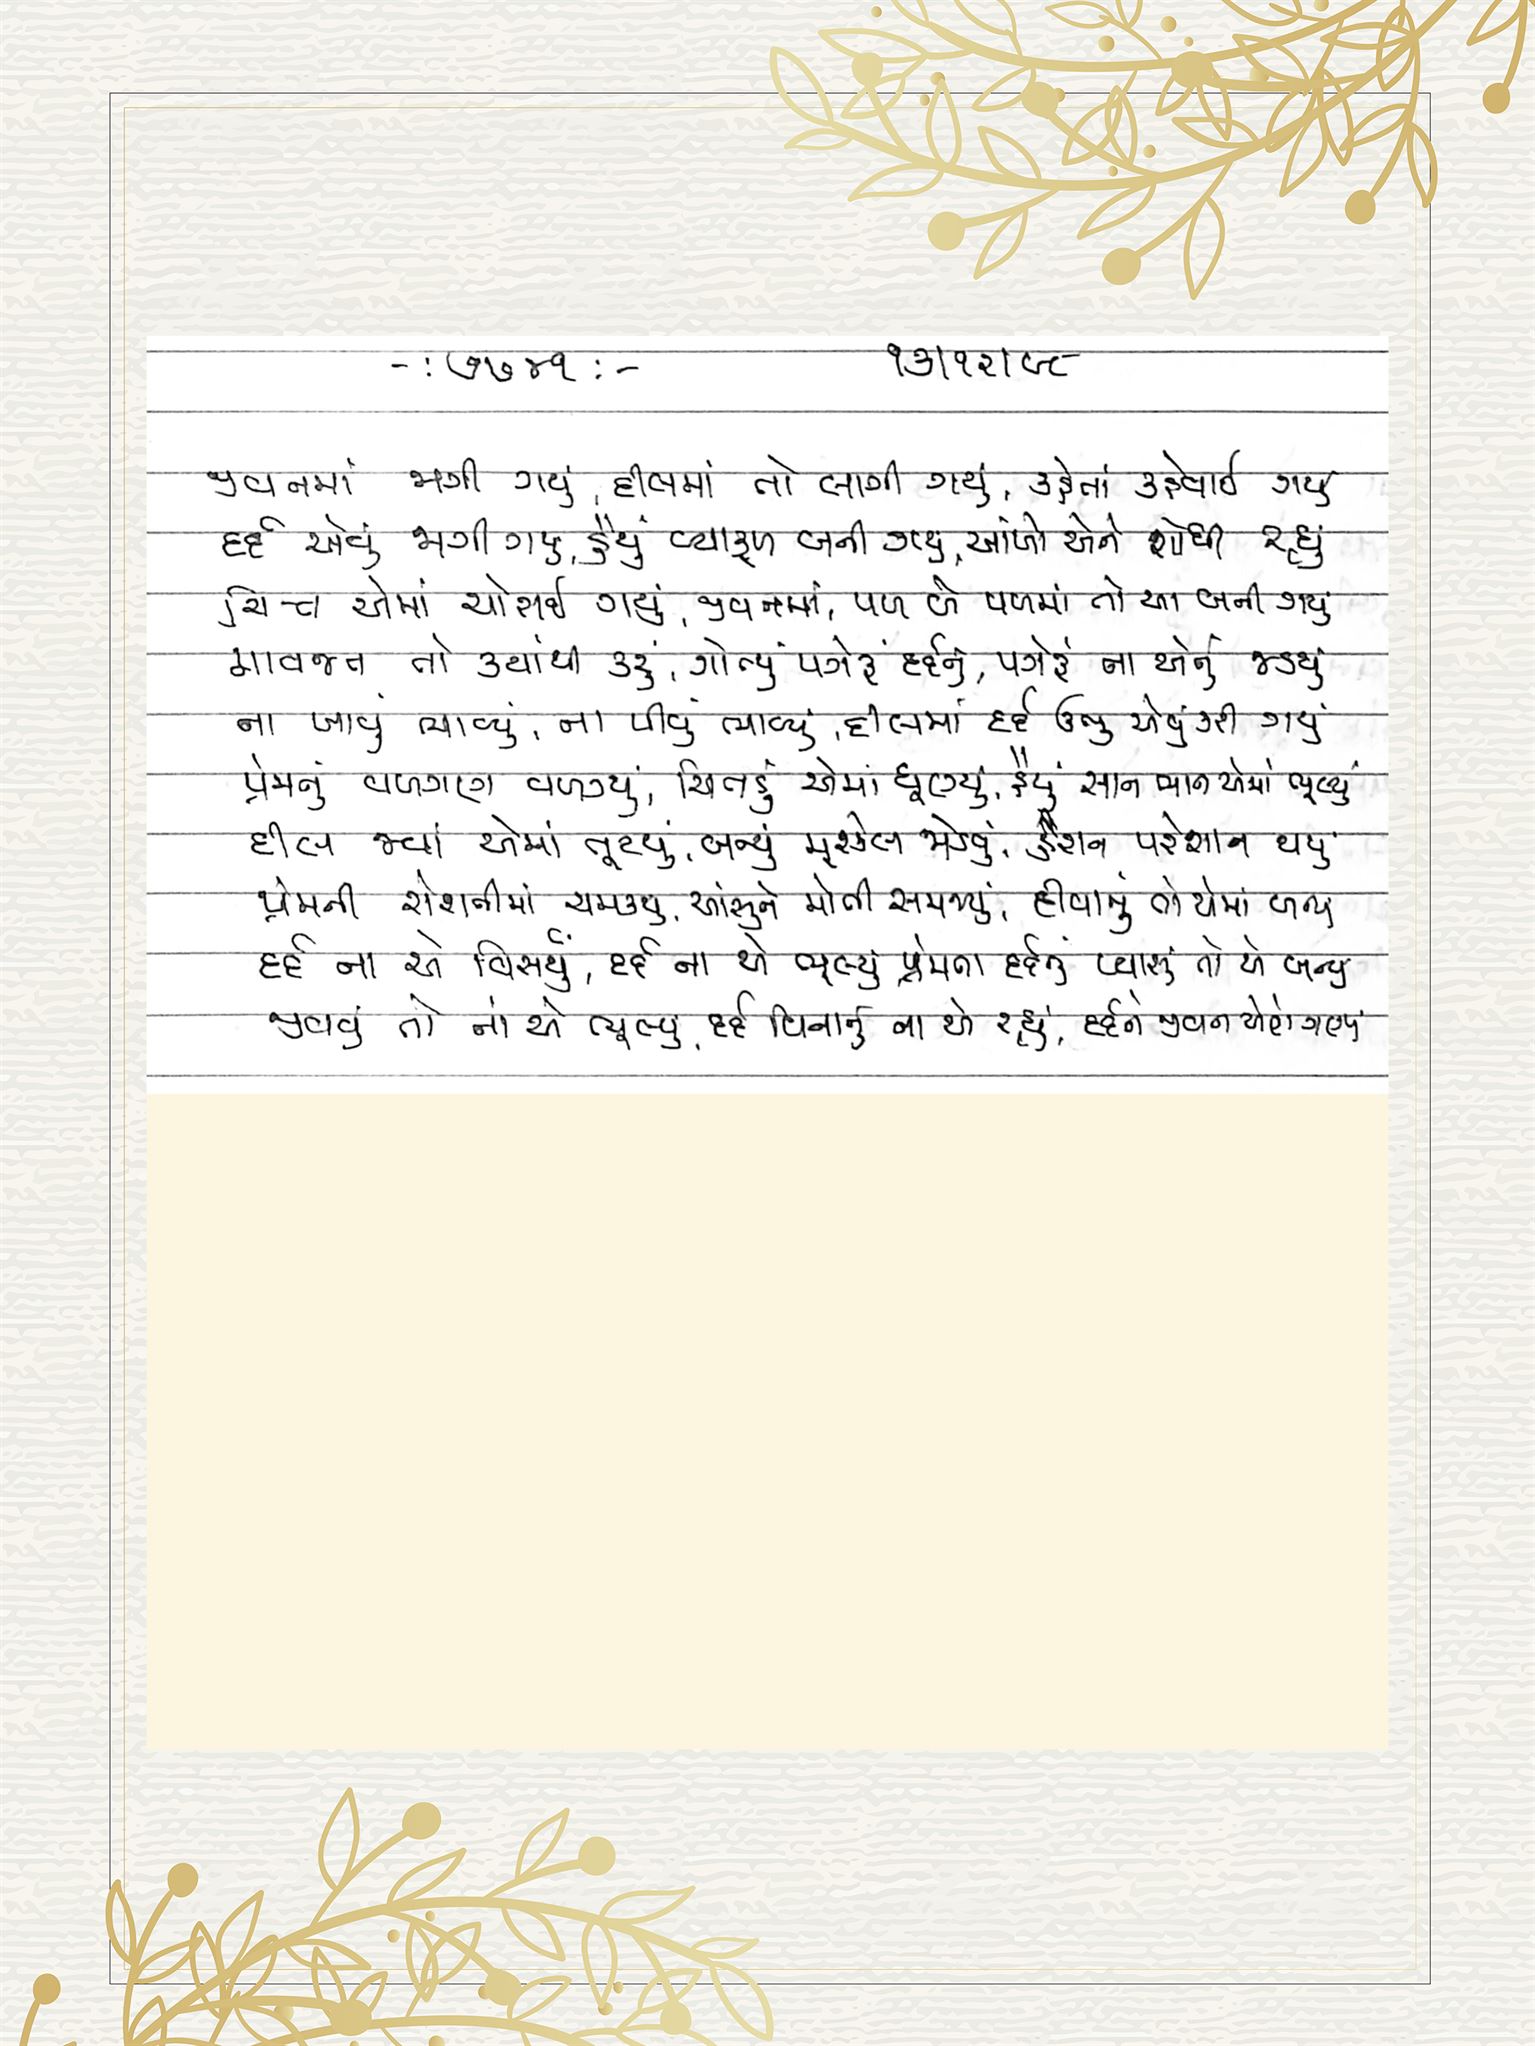 -: ૭૭૪૧ :- ૧૩/૧૨/૯૮
જીવનમાં જાગી ગયું, દીલમાં તો લાગી ગયું, કહેતાં કહેવાઈ ગયું
દર્દ એવું જાગી ગયું, હૈયું વ્યાકૂળ બની ગયું, આંખો એને શોધી રહ્યું
ચિત્ત એમાં ચોરાઈ ગયું, જીવનમાં, પળ બે પળમાં તો આ બની ગયું
માવજત તો ક્યાંથી કરું, ગોત્યું પગેરું દર્દનું, પગેરું ના એનું જડયું
ના ખાવું ભાવ્યું, ના પીવું ભાવ્યું, દીલમાં દર્દ ઉભુ એવું કરી ગયું
પ્રેમનું વળગણ વળગ્યું, ચિતડું એમાં ધૂણ્યું, હૈયું સાન ભાન એમાં ભૂલ્યું
દીલ જ્યાં એમાં તૂટયું, બન્યું મૂશ્કેલ જોડવું, હૈરાન પરેશાન થયું
પ્રેમની રોશનીમાં ચમક્યુ, આંસુને મોતી સમજ્યું, દીવાનું તો એમાં બન્યુ
દર્દ ના એ વિસર્યું, દર્દ ના એ ભૂલ્યું પ્રેમના દર્દનું પ્યાસું તો એ બન્યુ
જીવવું તો ના એ ભૂલ્યુ, દર્દ વિનાનું ના એ રહ્યું, દર્દને જીવન એણે ગણ્યું